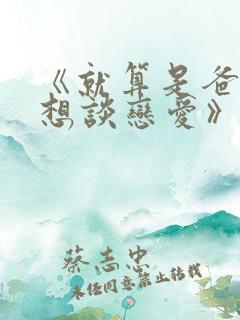 《就算是爸
想談戀愛》
蔡志忠
未经同意禁止转载